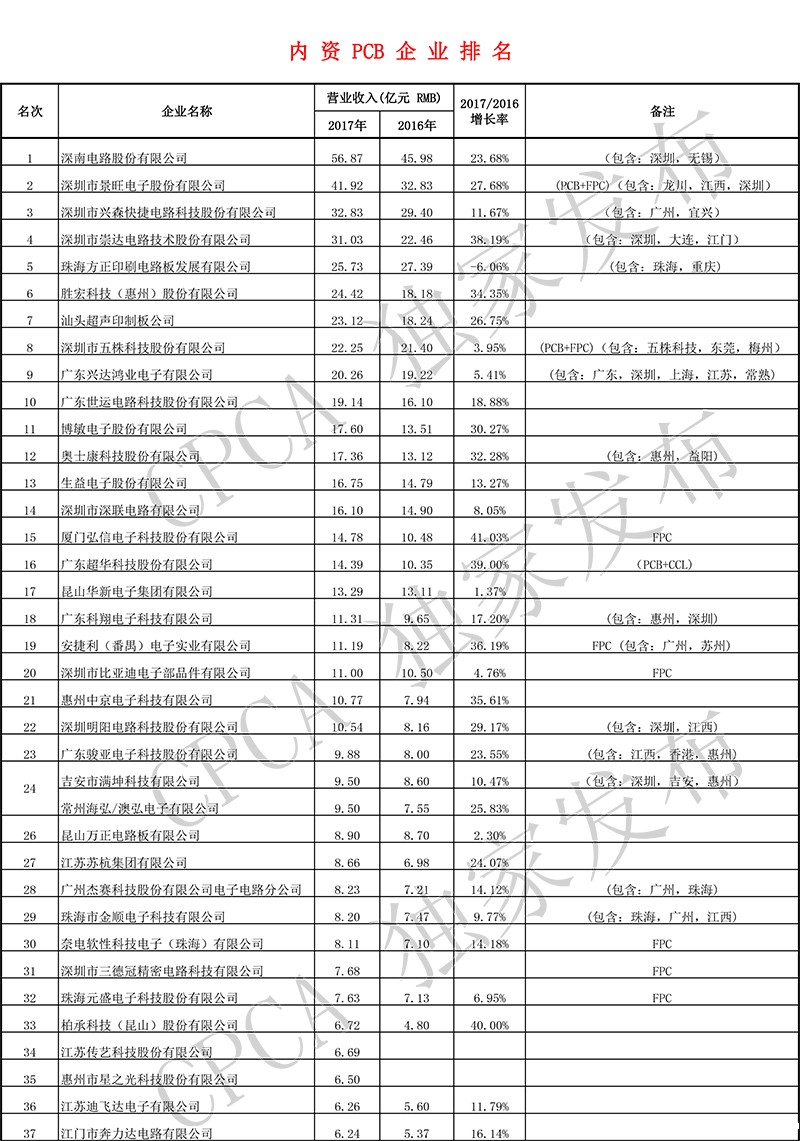 内 资 PCB 企 业 排 名
名次 企业名称 营业收入(亿元 RMB) 2017年 2016年 2017/2016 增长率 备注
1 深南电路股份有限公司 56.87 45.98 23.68% （包含：深圳，无锡）
2 深圳市景旺电子股份有限公司 41.92 32.83 27.68% (PCB+FPC)（包含：龙川，江西，深圳）
3 深圳市兴森快捷电路科技股份有限公司 32.83 29.40 11.67% （包含：广州，宜兴）
4 深圳市崇达电路技术股份有限公司 31.03 22.46 38.19% （包含：深圳，大连，江门）
5 珠海方正印刷电路板发展有限公司 25.73 27.39 -6.06% (包含：珠海，重庆)
6 胜宏科技（惠州）股份有限公司 24.42 18.18 34.35%
7 汕头超声印制板公司 23.12 18.24 26.75%
8 深圳市五株科技股份有限公司 22.25 21.40 3.95% (PCB+FPC)（包含：五株科技，东莞，梅州）
9 广东兴达鸿业电子有限公司 20.26 19.22 5.41% (包含：广东，深圳，上海，江苏，常熟)
10 广东世运电路科技股份有限公司 19.14 16.10 18.88%
11 博敏电子股份有限公司 17.60 13.51 30.27%
12 奥士康科技股份有限公司 17.36 13.12 32.28% (包含：惠州，益阳)
13 生益电子股份有限公司 16.75 14.79 13.27%
14 深圳市深联电路有限公司 16.10 14.90 8.05%
15 厦门弘信电子科技股份有限公司 14.78 10.48 41.03% FPC
16 广东超华科技股份有限公司 14.39 10.35 39.00% （PCB+CCL）
17 昆山华新电子集团有限公司 13.29 13.11 1.37%
18 广东科翔电子科技有限公司 11.31 9.65 17.20% (包含：惠州，深圳)
19 安捷利（番禺）电子实业有限公司 11.19 8.22 36.19% FPC (包含：广州，苏州)
20 深圳市比亚迪电子部品件有限公司 11.00 10.50 4.76% FPC
21 惠州中京电子科技有限公司 10.77 7.94 35.61%
22 深圳明阳电路科技股份有限公司 10.54 8.16 29.17% (包含：深圳，江西)
23 广东骏亚电子科技股份有限公司 9.88 8.00 23.55% (包含：江西，香港，惠州)
24 吉安市满坤科技有限公司 9.50 8.60 10.47% (包含：深圳，吉安，惠州）
常州海弘/澳弘电子有限公司 9.50 7.55 25.83%
26 昆山万正电路板有限公司 8.90 8.70 2.30%
27 江苏苏杭集团有限公司 8.66 6.98 24.07%
28 广州杰赛科技股份有限公司电子电路分公司 8.23 7.21 14.12% (包含：广州，珠海)
29 珠海市金顺电子科技有限公司 8.20 7.47 9.77% (包含：珠海，广州，江西)
30 奈电软性科技电子（珠海）有限公司 8.11 7.10 14.18% FPC
31 深圳市三德冠精密电路科技有限公司 7.68 FPC
32 珠海元盛电子科技股份有限公司 7.63 7.13 6.95% FPC
33 柏承科技（昆山）股份有限公司 6.72 4.80 40.00%
34 江苏传艺科技股份有限公司 6.69
35 惠州市星之光科技股份有限公司 6.50
36 江苏迪飞达电子有限公司 6.26 5.60 11.79%
37 江门市奔力达电路有限公司 6.24 5.37 16.14%
CPCA 独家发布
CPCA 独家发布
CPCA 独家发布